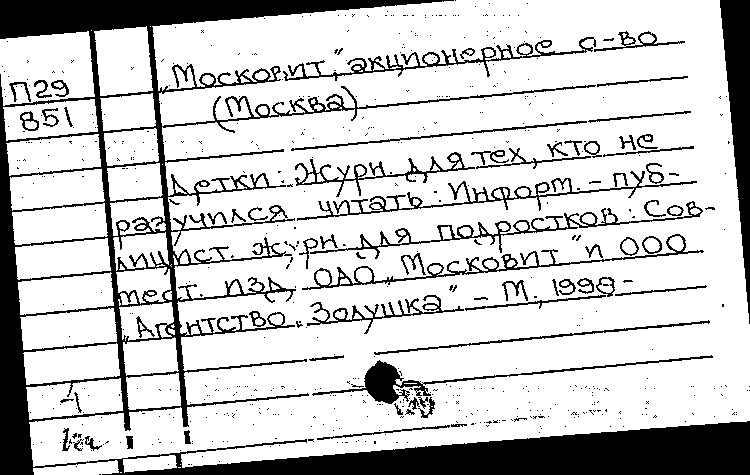 П29
851
„Московит", акционерное о-во
(Москва)
Детки: Журн. для тех, кто не
разучился читать: Информ.-пуб-
лицист. журн. для подростков: Сов-
мест. изд. ОАО „Московит" и ООО
„Агентство „Золушка". - М., 1998-
4